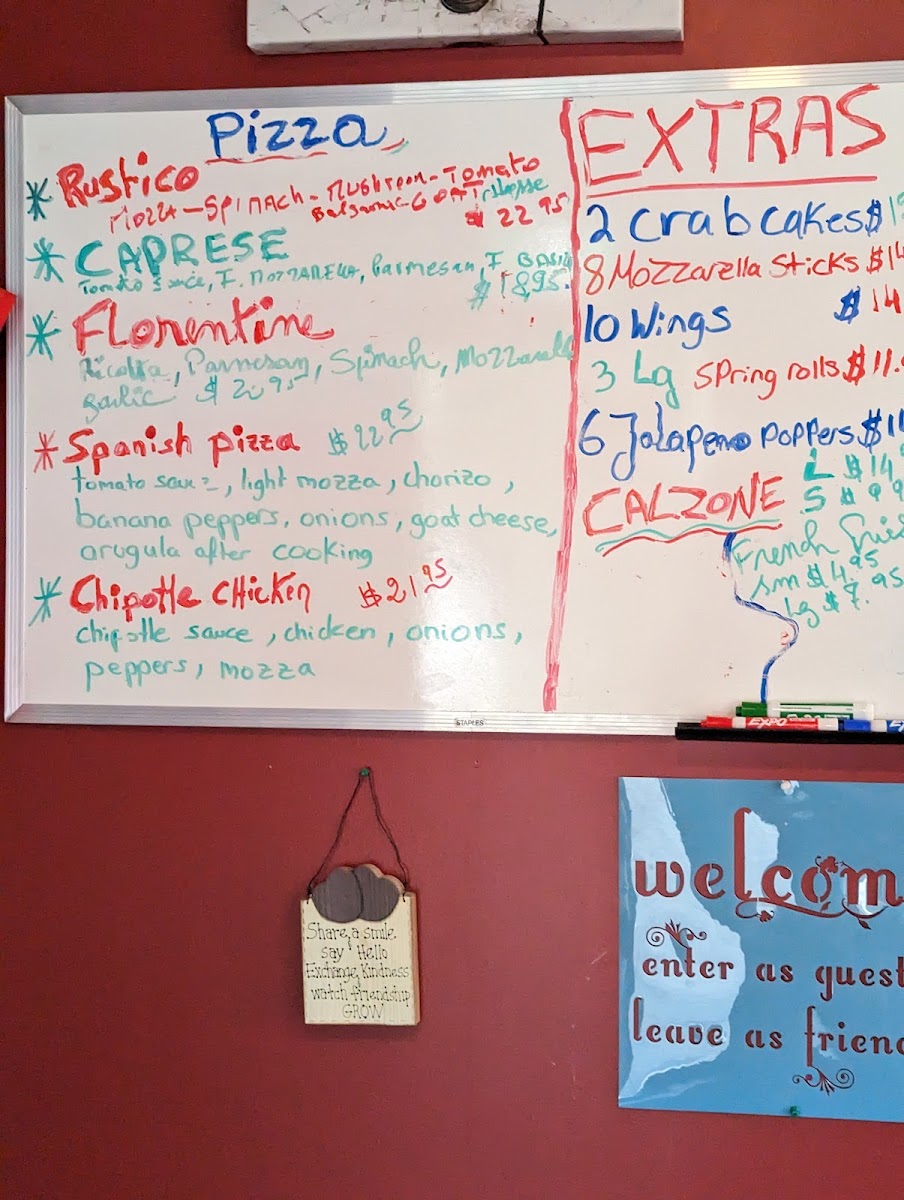 Pizza
* Rustico
Mozza - SPINACH - Mushroom - Tomato
Balsamic - GOAT cheese
$ 22 95
* CAPRESE
Tomato Sauce, F. MOZZARELLA, Parmesan, F BASIL
$ 18.95
* Florentine
Ricotta, Parmesan, Spinach, Mozzarella
garlic $ 20 95
* Spanish pizza $22 95
tomato sauce, light mozza, chorizo,
banana peppers, onions, goat cheese,
arugula after cooking
* Chipotle CHicKen $21 95
chipotle sauce, chicken, onions,
peppers, mozza
EXTRAS
2 Crab cakes $
8 Mozzarella Sticks $14
10 Wings $ 14
3 Lg SPring rolls $11.
6 Jalapeno Poppers $
CALZONE L $14
S $ 9 9
French Fries
sm $4.95
Lg $7.95
STAPLES
EXPO
Share a smile
say Hello
Exchange Kindness
watch friendship
GROW
welcom
enter as guest
leave as friend